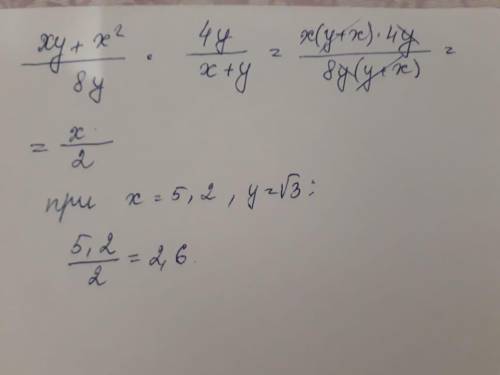 (xy + x²)/(8y) · (4y)/(x + y) = (x(y + x) · 4y)/(8y(y + x)) =
= x/2
при x = 5,2 , y = √3 :
5,2/2 = 2,6.